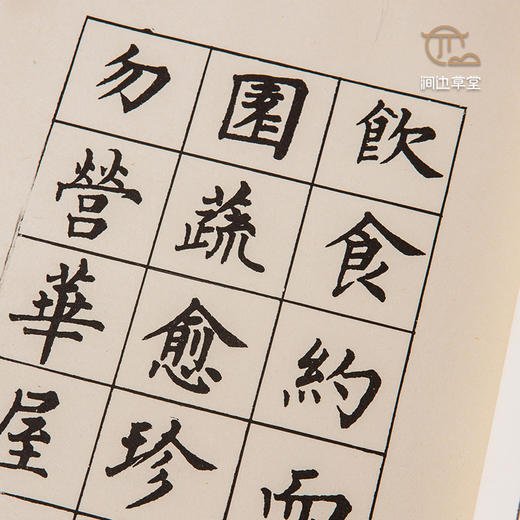 飲食約而
園蔬愈珍
勿營華屋
涧边草堂